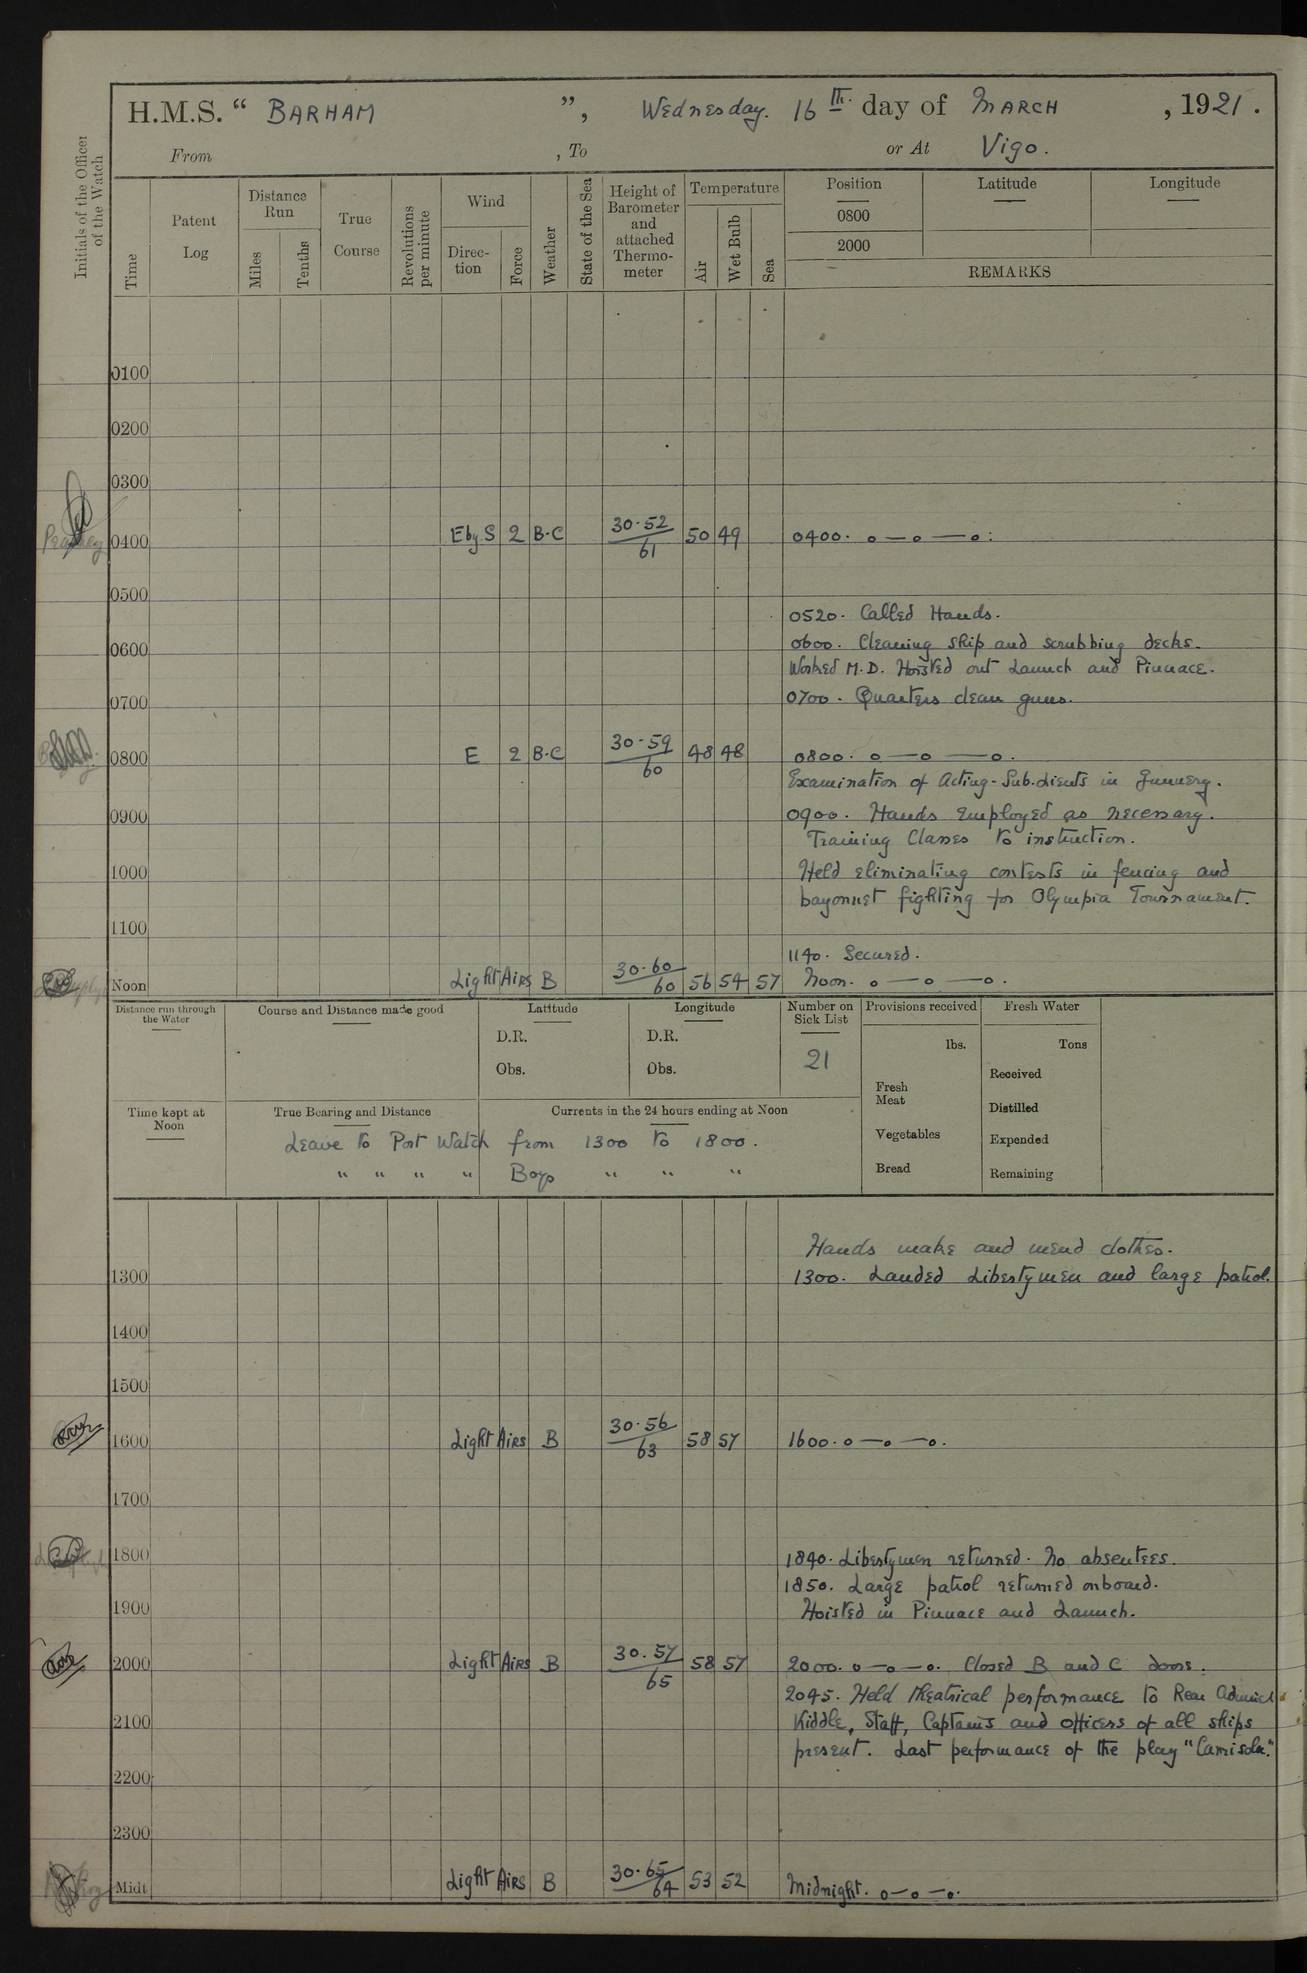 H.M.S. “ BARHAM ”, Wednesday. 16th. day of MARCH , 1921.
From , To or At Vigo.
Initials of the Officer of the Watch
Time
Patent Log
Distance Run
Miles
Tenths
True Course
Revolutions per minute
Wind
Direc-tion
Force
Weather
State of the Sea
Height of Barometer and attached Thermo-meter
Temperature
Air
Wet Bulb
Sea
Position
0800
2000
Latitude
Longitude
REMARKS
0100
0200
0300
0400 E by S 2 B.C 30.52 / 61 50 49 0400. o — o — o :
0500
0520. Called Hands.
0600 0600. Cleaning ship and scrubbing decks.
Worked M.D. Hoisted out Launch and Pinnace.
0700 0700. Quarters clean guns.
0800 E 2 B.C 30.59 / 60 48 48 0800. o — o — o.
Examination of Acting-Sub.Lieuts in Gunnery.
0900 0900. Hands employed as necessary.
Training Classes to instruction.
1000 Held eliminating contests in fencing and
bayonnet fighting for Olympia Tournament.
1100
1140. Secured.
Noon Light Airs B 30.60 / 60 56 54 57 Noon. o — o — o.
Distance run through the Water
Course and Distance made good
Latitude
D.R.
Obs.
Longitude
D.R.
Obs.
Number on Sick List
21
Provisions received
lbs.
Fresh Meat
Vegetables
Bread
Fresh Water
Tons
Received
Distilled
Expended
Remaining
Time kept at Noon
True Bearing and Distance
Currents in the 24 hours ending at Noon
Leave to Port Watch from 1300 to 1800.
" " " " Boys " " "
Hands make and mend clothes.
1300 1300. Landed Libertymen and large patrol.
1400
1500
1600 Light Airs B 30.56 / 63 58 57 1600. o — o — o.
1700
1800 1840. Libertymen returned. No absentees.
1850. Large patrol returned onboard.
1900 Hoisted in Pinnace and Launch.
2000 Light Airs B 30.57 / 65 58 57 2000. o — o — o. Closed B and C doors.
2045. Held theatrical performance to Rear Admiral
2100 Kiddle, Staff, Captains and officers of all ships
present. Last performance of the play "Camisole."
2200
2300
Midt Light Airs B 30.65 / 64 53 52 Midnight. o — o — o.